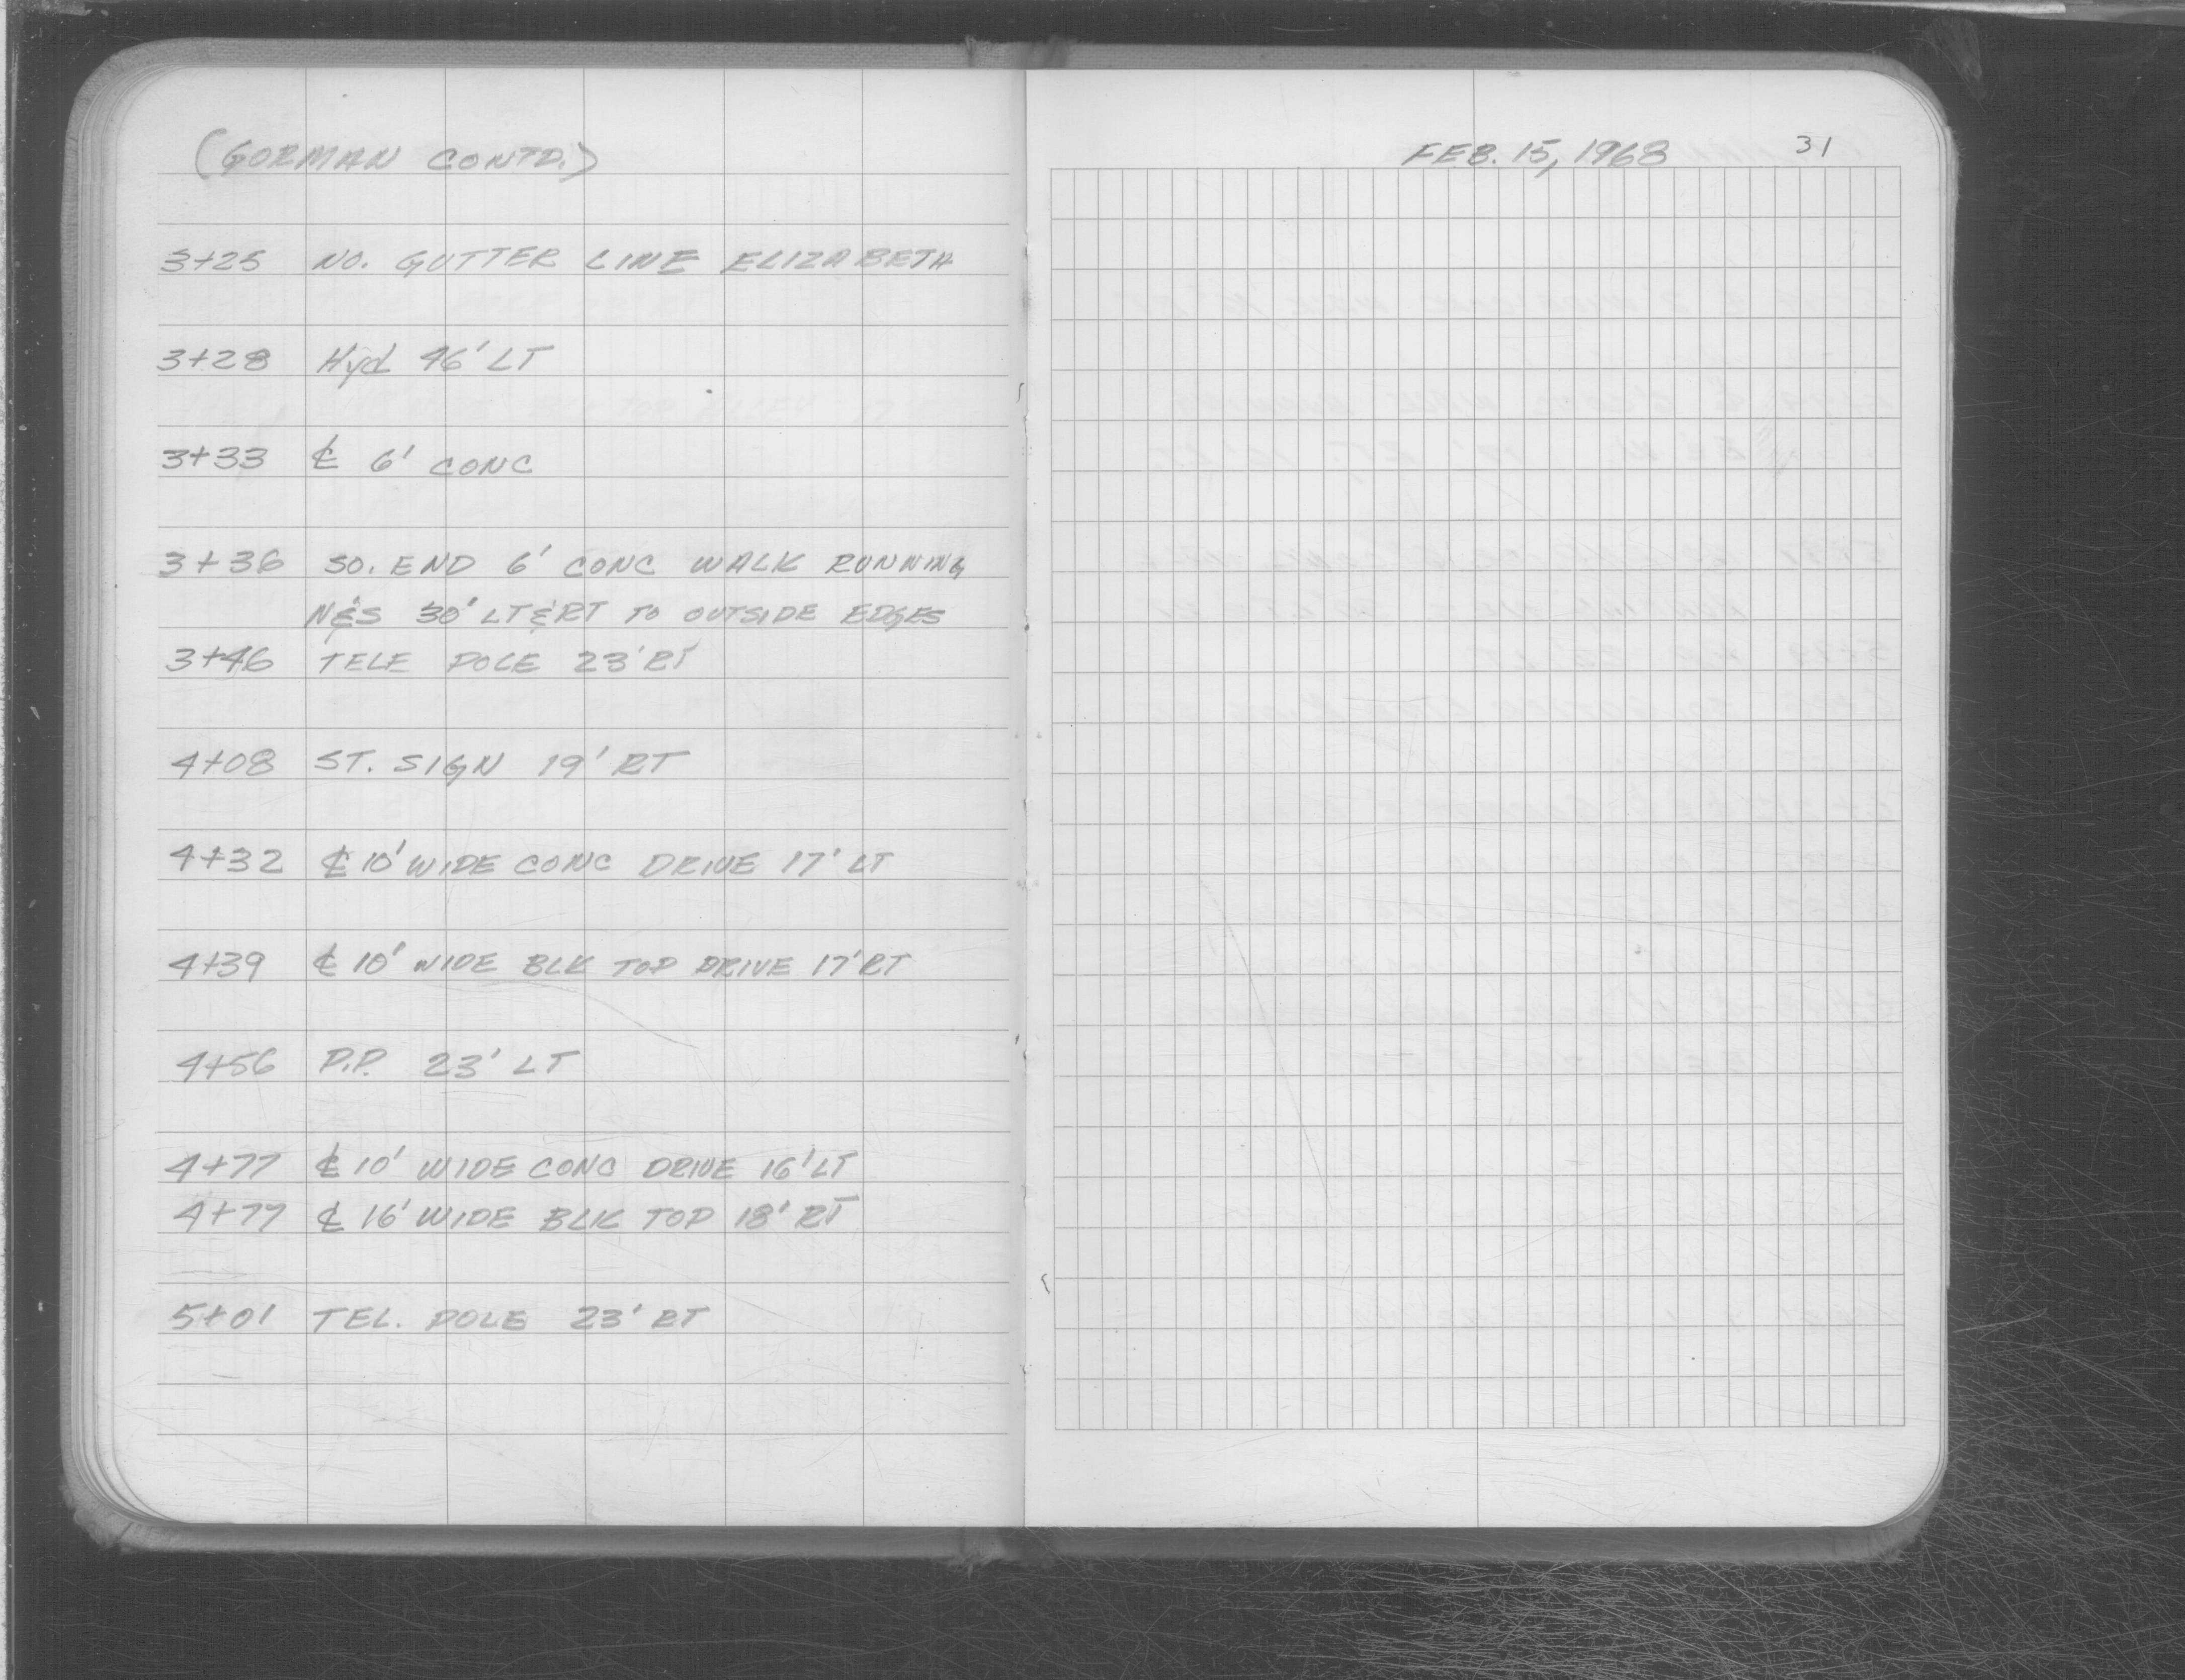 (GORMAN CONTD.)
3+25 NO. GUTTER LINE ELIZABETH
3+28 Hyd 46' LT
3+33 ℄ 6' CONC
3+36 SO. END 6' CONC WALK RUNNING
N&S 30' LT & RT TO OUTSIDE EDGES
3+46 TELE POLE 23' RT
4+08 ST. SIGN 19' RT
4+32 ℄ 10' WIDE CONC DRIVE 17' LT
4+39 ℄ 10' WIDE BLK TOP DRIVE 17' RT
4+56 P.P. 23' LT
4+77 ℄ 10' WIDE CONC DRIVE 16' LT
4+77 ℄ 16' WIDE BLK TOP 18' RT
5+01 TEL. POLE 23' RT
FEB. 15, 1968 31